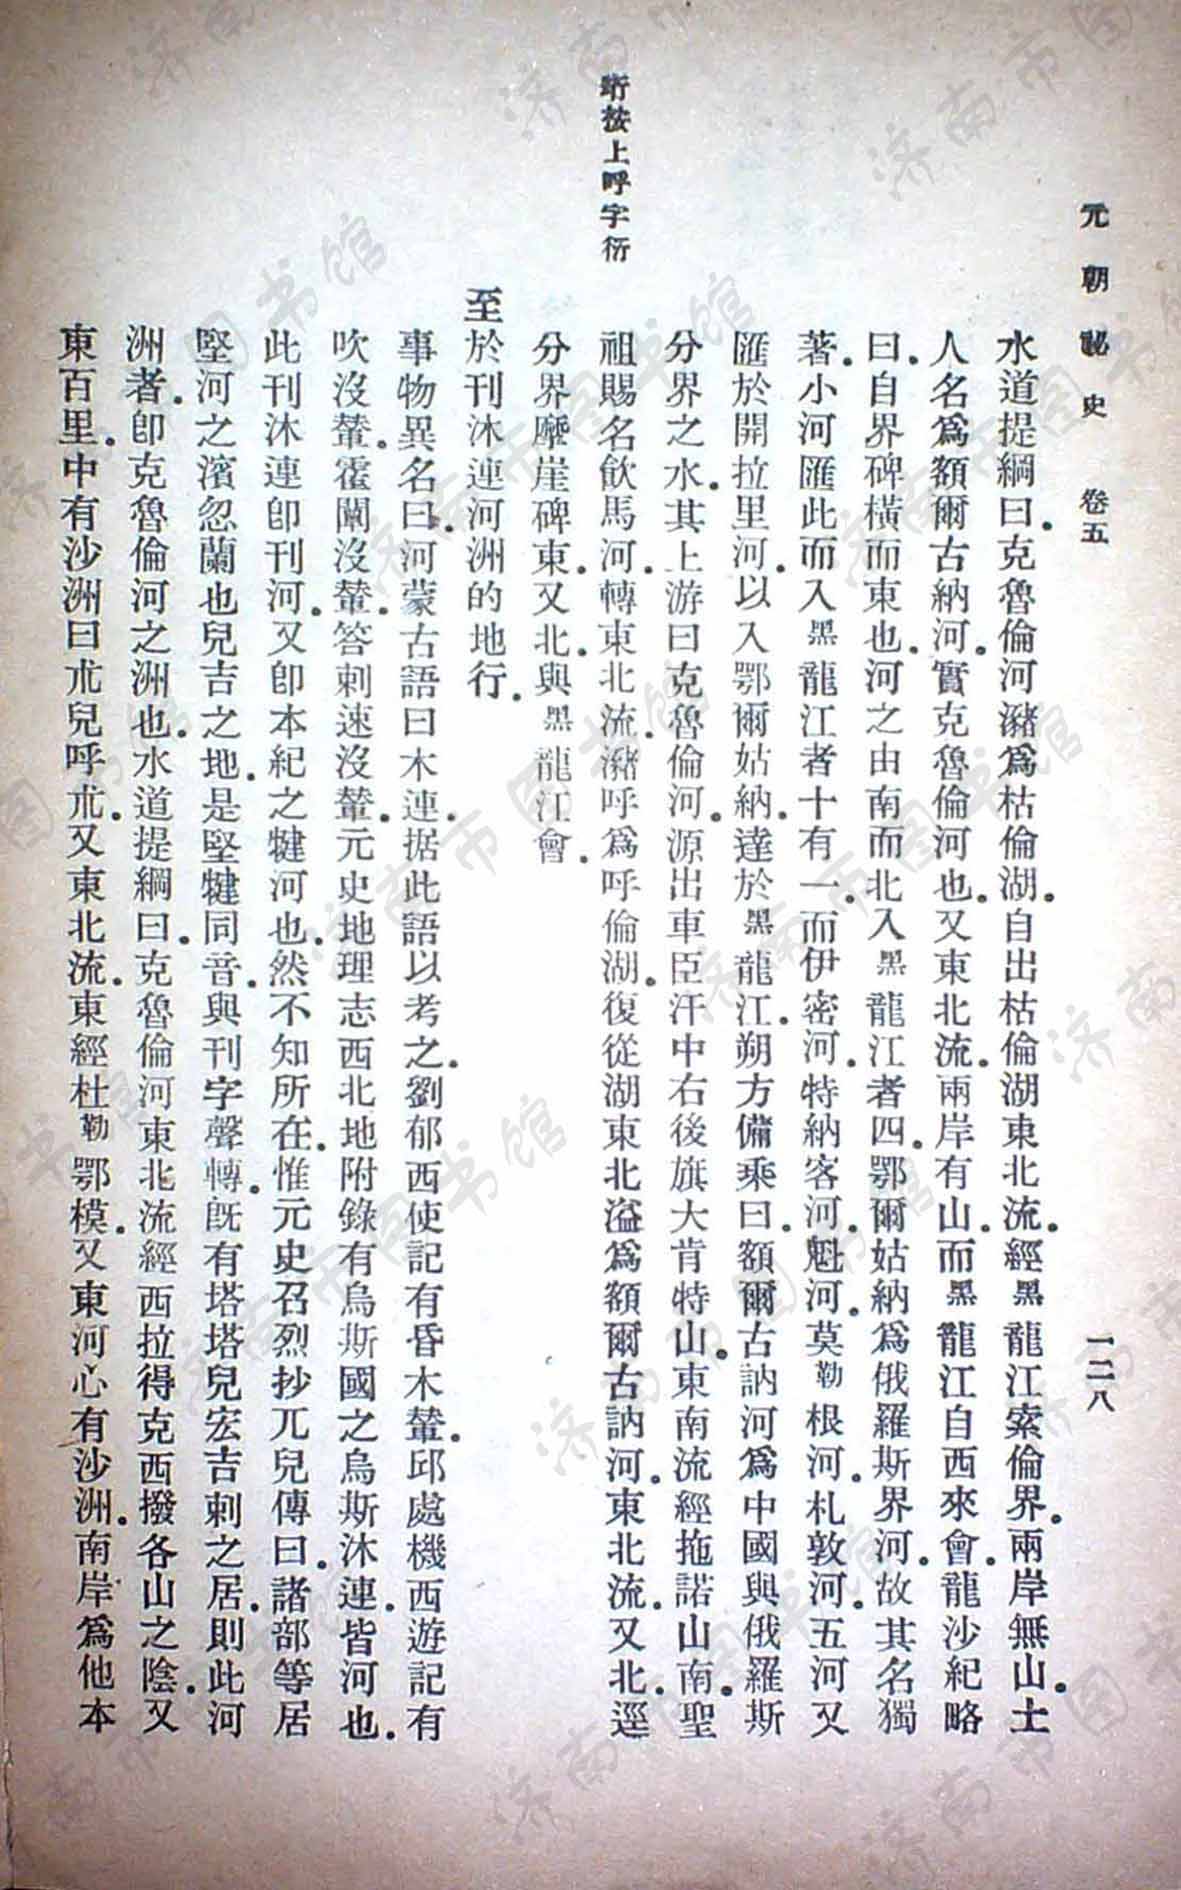 元朝祕史 卷五
一二八
水道提綱曰克魯倫河瀦爲枯倫湖自出枯倫湖東北流經黑龍江索倫界兩岸無山土
人名爲額爾古納河實克魯倫河也又東北流兩岸有山而黑龍江自西來會龍沙紀略
曰自界碑橫而東也河之由南而北入黑龍江者四鄂爾姑納爲俄羅斯界河故其名獨
著小河匯此而入黑龍江者十有一而伊密河特納客河魁河莫勒根河札敦河五河又
匯於開拉里河以入鄂爾姑納達於黑龍江朔方備乘曰額爾古訥河爲中國與俄羅斯
分界之水其上游曰克魯倫河源出車臣汗中右後旗大肯特山東南流經拖諾山南聖
祖賜名飲馬河轉東北流瀦呼爲呼倫湖復從湖東北溢爲額爾古訥河東北流又北逕
珩按上呼字衍
分界摩崖碑東又北與黑龍江會
至於刊沐連河洲的地行
事物異名曰河蒙古語曰木連据此語以考之劉郁西使記有昏木輦邱處機西遊記有
吹沒輦霍闡沒輦答剌速沒輦元史地理志西北地附錄有烏斯國之烏斯沐連皆河也
此刊沐連卽刊河又卽本紀之犍河也然不知所在惟元史召烈抄兀兒傳曰諸部等居
堅河之濱忽蘭也兒吉之地是堅犍同音與刊字聲轉旣有塔塔兒宏吉剌之居則此河
洲者卽克魯倫河之洲也水道提綱曰克魯倫河東北流經西拉得克西撥各山之陰又
東百里中有沙洲曰朮兒呼朮又東北流東經杜勒鄂模又東河心有沙洲南岸爲他本